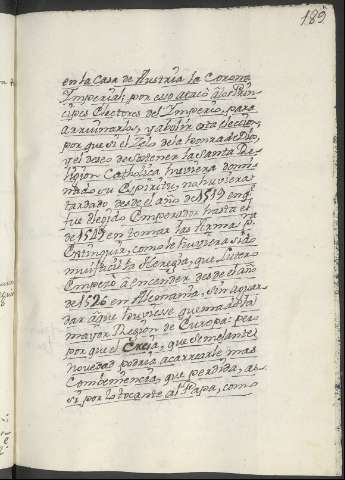 189
en la Casa de Austria la Corona
Imperial; por eso atacó à los Prin-
cipes Electores del Imperio, para
arruinarlos, y abolir esta eleccion,
por que si el Zelo de la honra de Dios,
y el deseo de sostener la Santa Re-
ligion Catholica huviera domi-
nado su Espiritu, no huviera
tardado desde el año de 1519 en q.e
fue elegido Emperador hasta el
de 1547 en tomar las Armas p.a
Extinguir, como le huviera sido
mui facil la Heregia, que Lutero
Empezó à encender desde el año
de 1526 en Alemania, sin aguar-
dar à que huviese quemado la
mayor Region de Europa: pero
por que el Creia, que semejante
novedad podria acarrearle mas
Combeniencia, que perdida, as-
si por lo tocante al Papa, como